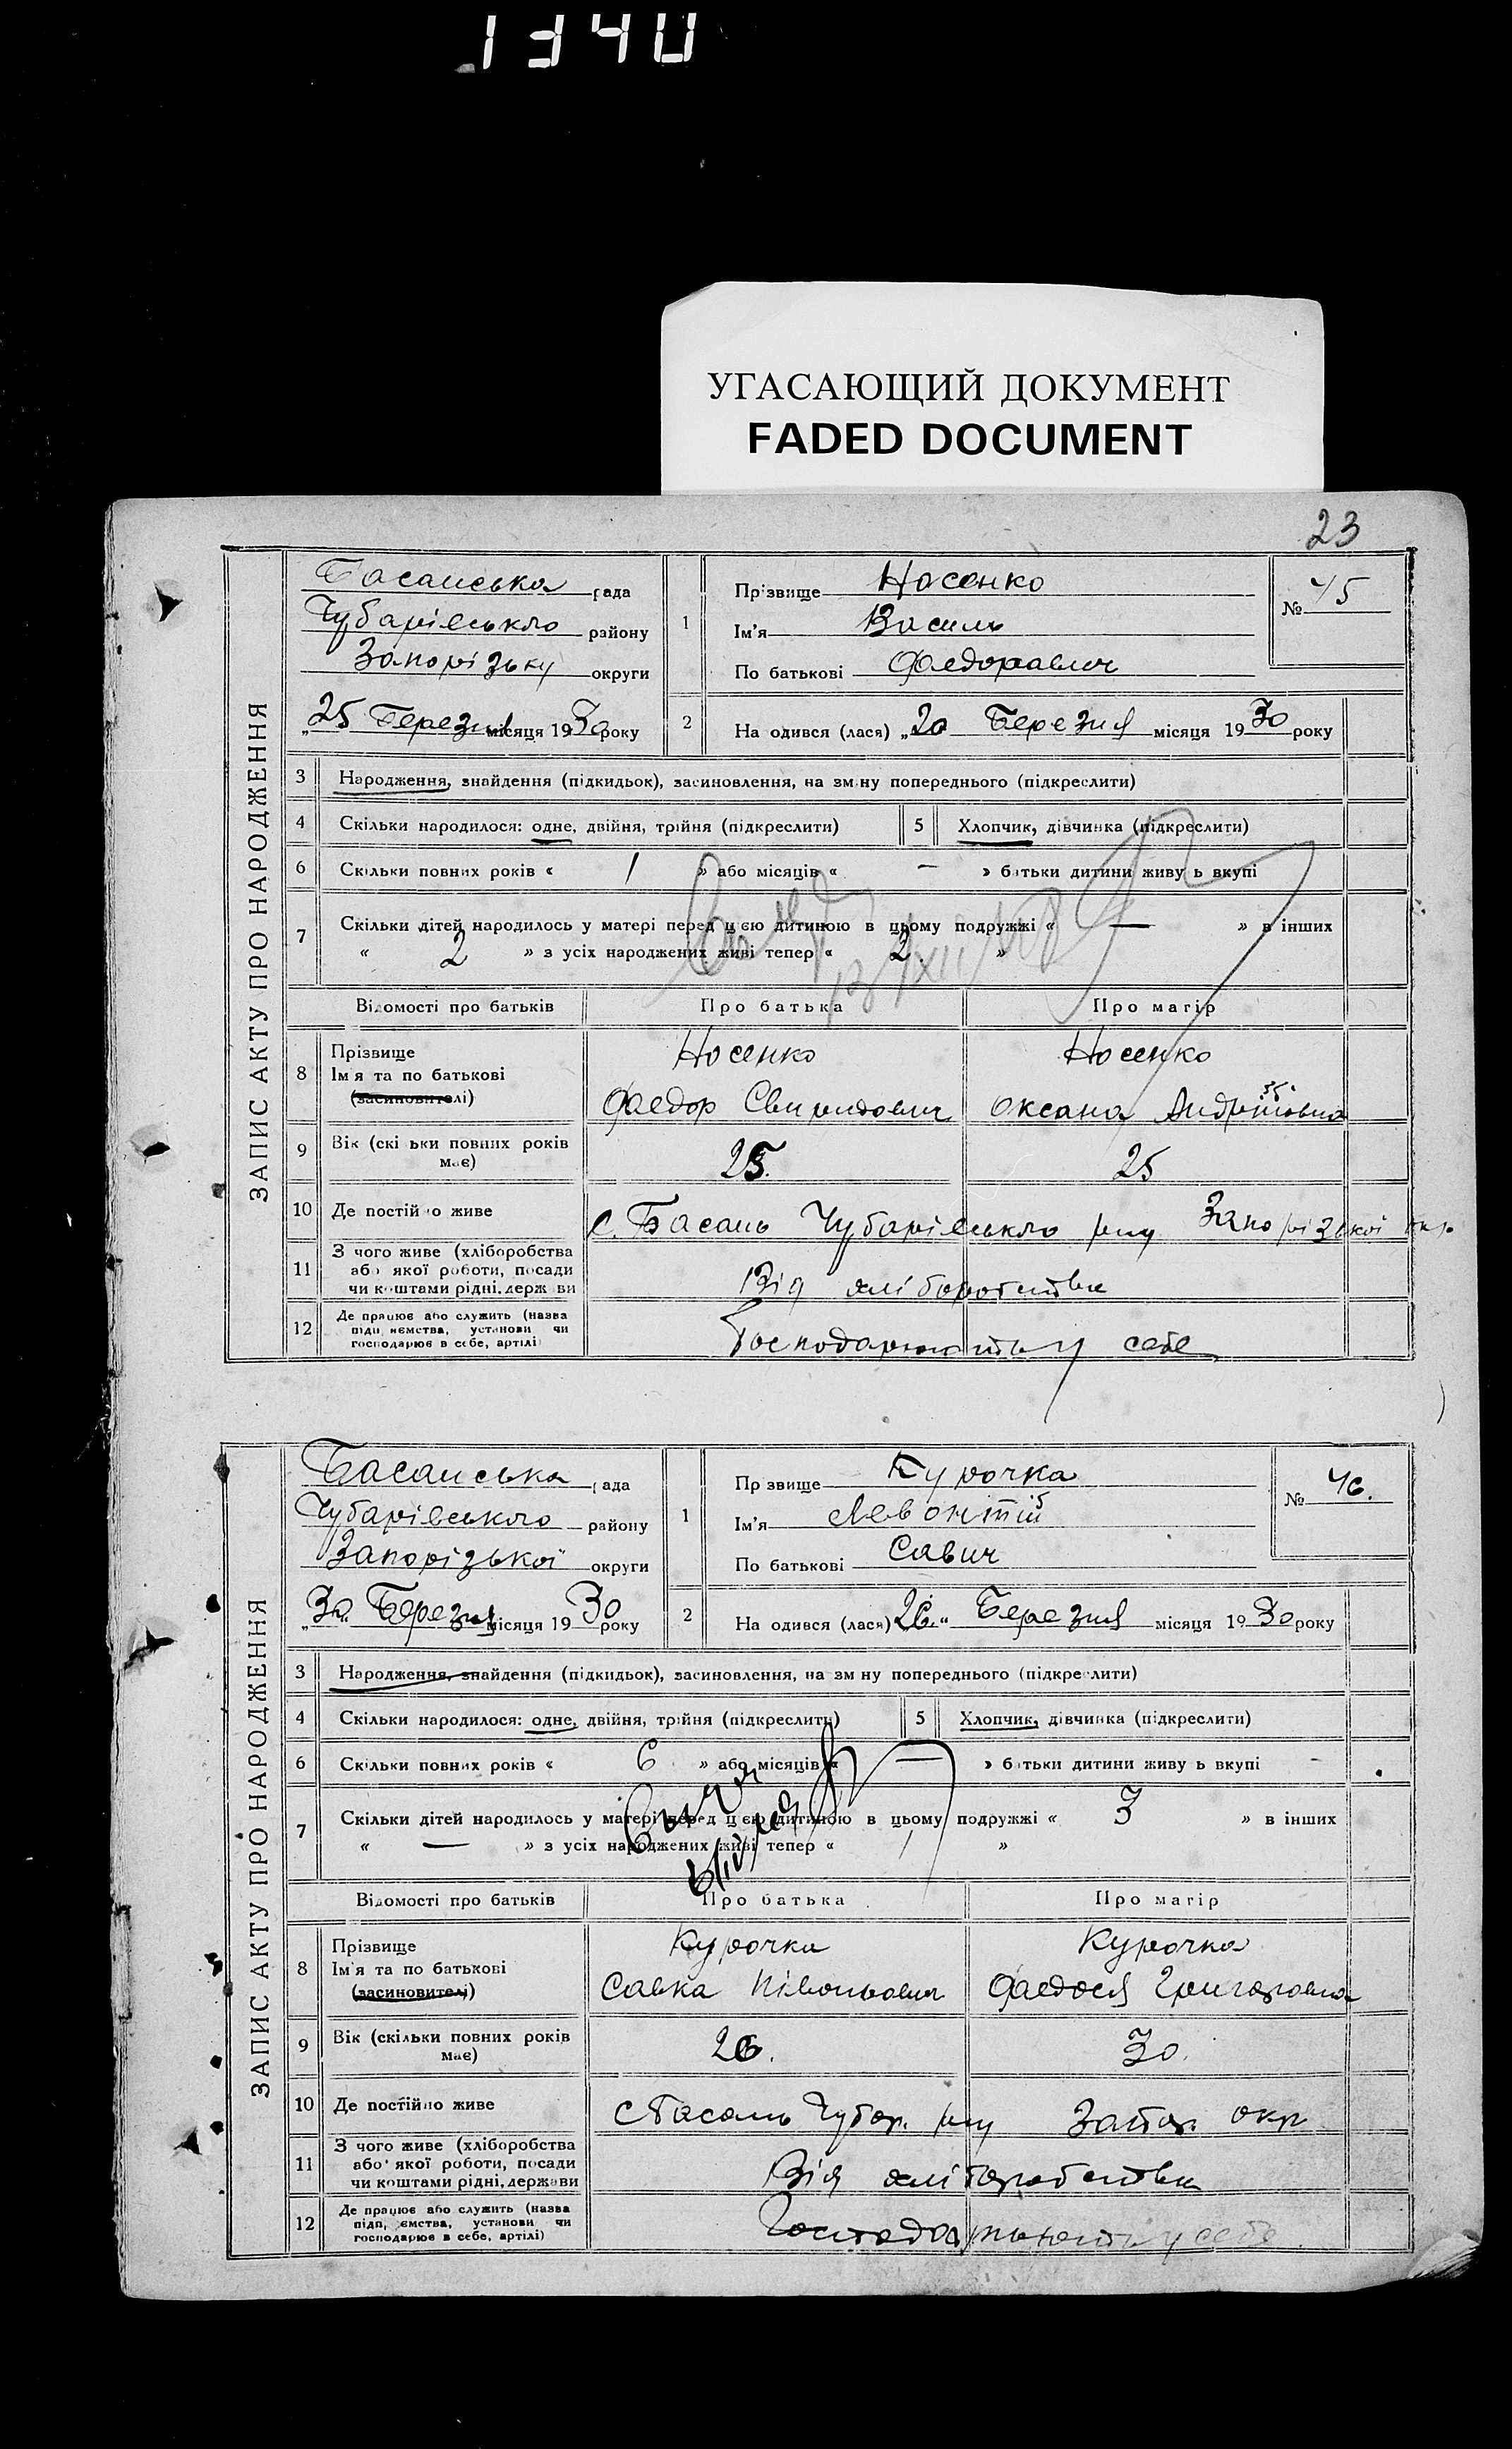 1340
УГАСАЮЩИЙ ДОКУМЕНТ
FADED DOCUMENT
23
ЗАПИС АКТУ ПРО НАРОДЖЕННЯ
Басанська рада
Чубарівськло району
Запорізьку округи
„25 Березня місяця 1930 року
1 Прізвище Носенко
Ім'я Василь
По батькові Фаедоравич
№ 45
2 На одився (лася) „20 Березня місяця 1930 року
3 Народження, знайдення (підкидьок), засиновлення, на зміну попереднього (підкреслити)
4 Скільки народилося: одне, двійня, трійня (підкреслити) 5 Хлопчик, дівчинка (підкреслити)
6 Скільки повних років « 1 » або місяців « — » батьки дитини живу ь вкупі
7 Скільки дітей народилось у матері перед цією дитиною в цьому подружжі « — » в інших
« 2 » з усіх народжених живі тепер « 2. »
Відомості про батьків Про батька Про матір
8 Прізвище Носенко Носенко
Ім'я та по батькові
(засиновителі) Фаедор Свиридович Оксана Андріівна
9 Вік (скі ьки повних років має) 25. 25
10 Де постійно живе с. Басань Чубарівськло р-ну Запорізької окр.
11 З чого живе (хліборобства
або якої роботи, посади
чи коштами рідні, держ ви Від хліборобства
12 Де працює або служить (назва
підп иємства, установи чи
господарює в себе, артілі) Господарюють у себе
ЗАПИС АКТУ ПРО НАРОДЖЕННЯ
Басанська рада
Чубарівського району
Запорізької округи
„30„ Березня місяця 1930 року
1 Пр звище Курочка
Ім'я Левонтій
По батькові Савич
№ 46.
2 На одився (лася) 26.“ Березня місяця 1930 року
3 Народження, знайдення (підкидьок), засиновлення, на зм ну попереднього (підкреслити)
4 Скільки народилося: одне, двійня, трійня (підкреслить) 5 Хлопчик, дівчинка (підкреслити)
6 Скільки повних років « 6 » або місяців « — » батьки дитини живу ь вкупі
7 Скільки дітей народилось у матері перед цією дитиною в цьому подружжі « 3 » в інших
« — » з усіх народжених живі тепер « »
Відомості про батьків Про батька Про матір
8 Прізвище Курочка Курочка
Ім'я та по батькові
(засиновителі) Савка Фаедося Григоровна
9 Вік (скільки повних років має) 26. 30.
10 Де постійно живе с Басань Чубар. р-ну Запор. окр
11 З чого живе (хліборобства
або якої роботи, посади
чи коштами рідні, держави Від хліборобства
12 Де працює або служить (назва
підп, ємства, установи чи
господарює в себе, артілі) Господарюють у себе